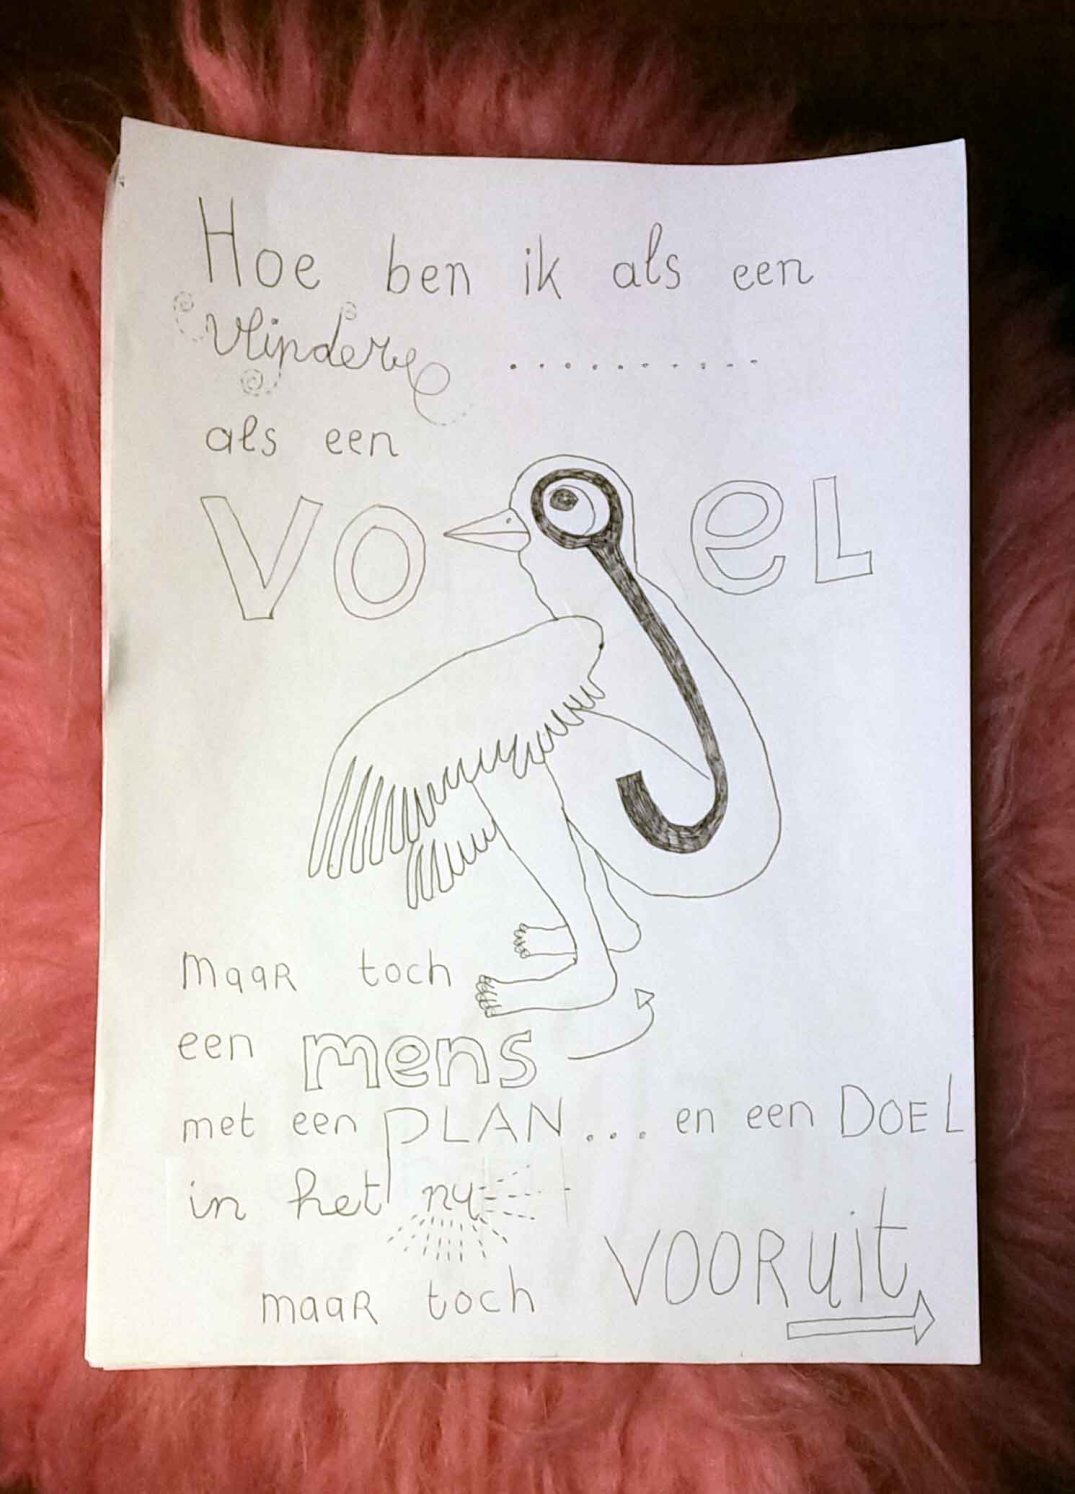 Hoe ben ik als een
vlinder ..........
als een
VOgeL
maaR toch
een mens
met een PLAN... en een DOEL
in het nu
maaR toch VOORuit